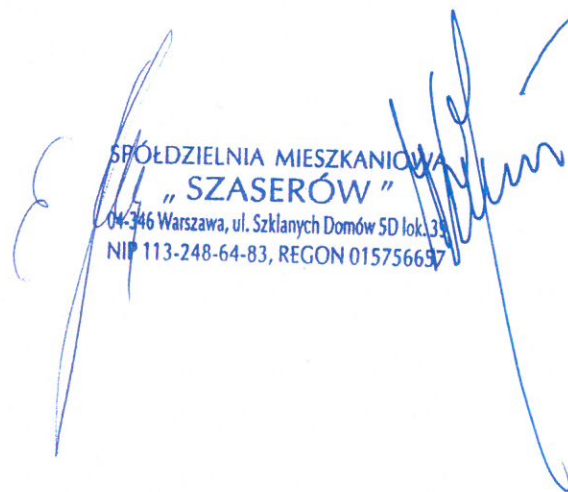 SPÓŁDZIELNIA MIESZKANIOWA
„ SZASERÓW ”
04-346 Warszawa, ul. Szklanych Domów 5D lok. 39
NIP 113-248-64-83, REGON 015756657